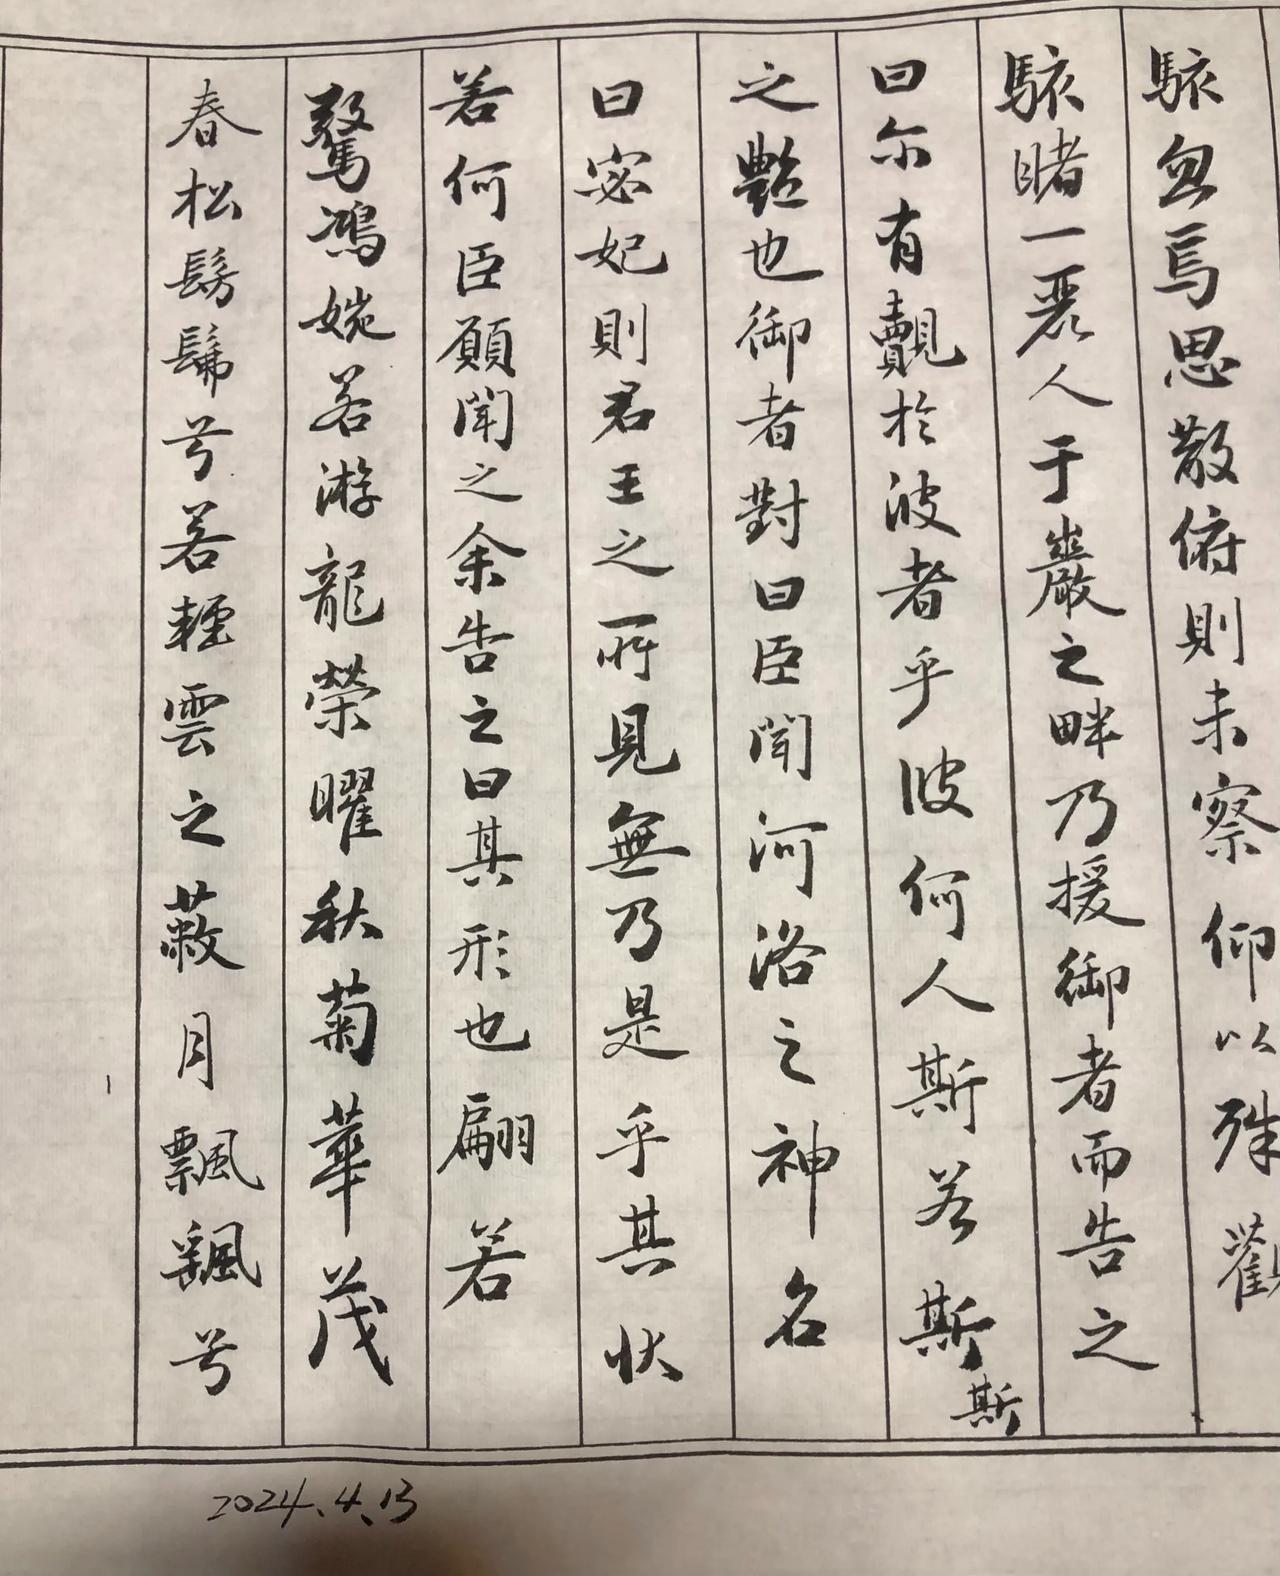 駭忽焉思散俯則未察仰以殊觀
駭睹一麗人于巖之畔乃援御者而告之
曰尔有覿於波者乎彼何人斯若斯
斯
之豔也御者對曰臣聞河洛之神名
曰宓妃則君王之所見無乃是乎其状
若何臣願聞之余告之曰其形也翩若
驚鴻婉若游龍榮曜秋菊華茂
春松髣髴兮若輕雲之蔽月飄颻兮
2024.4.13